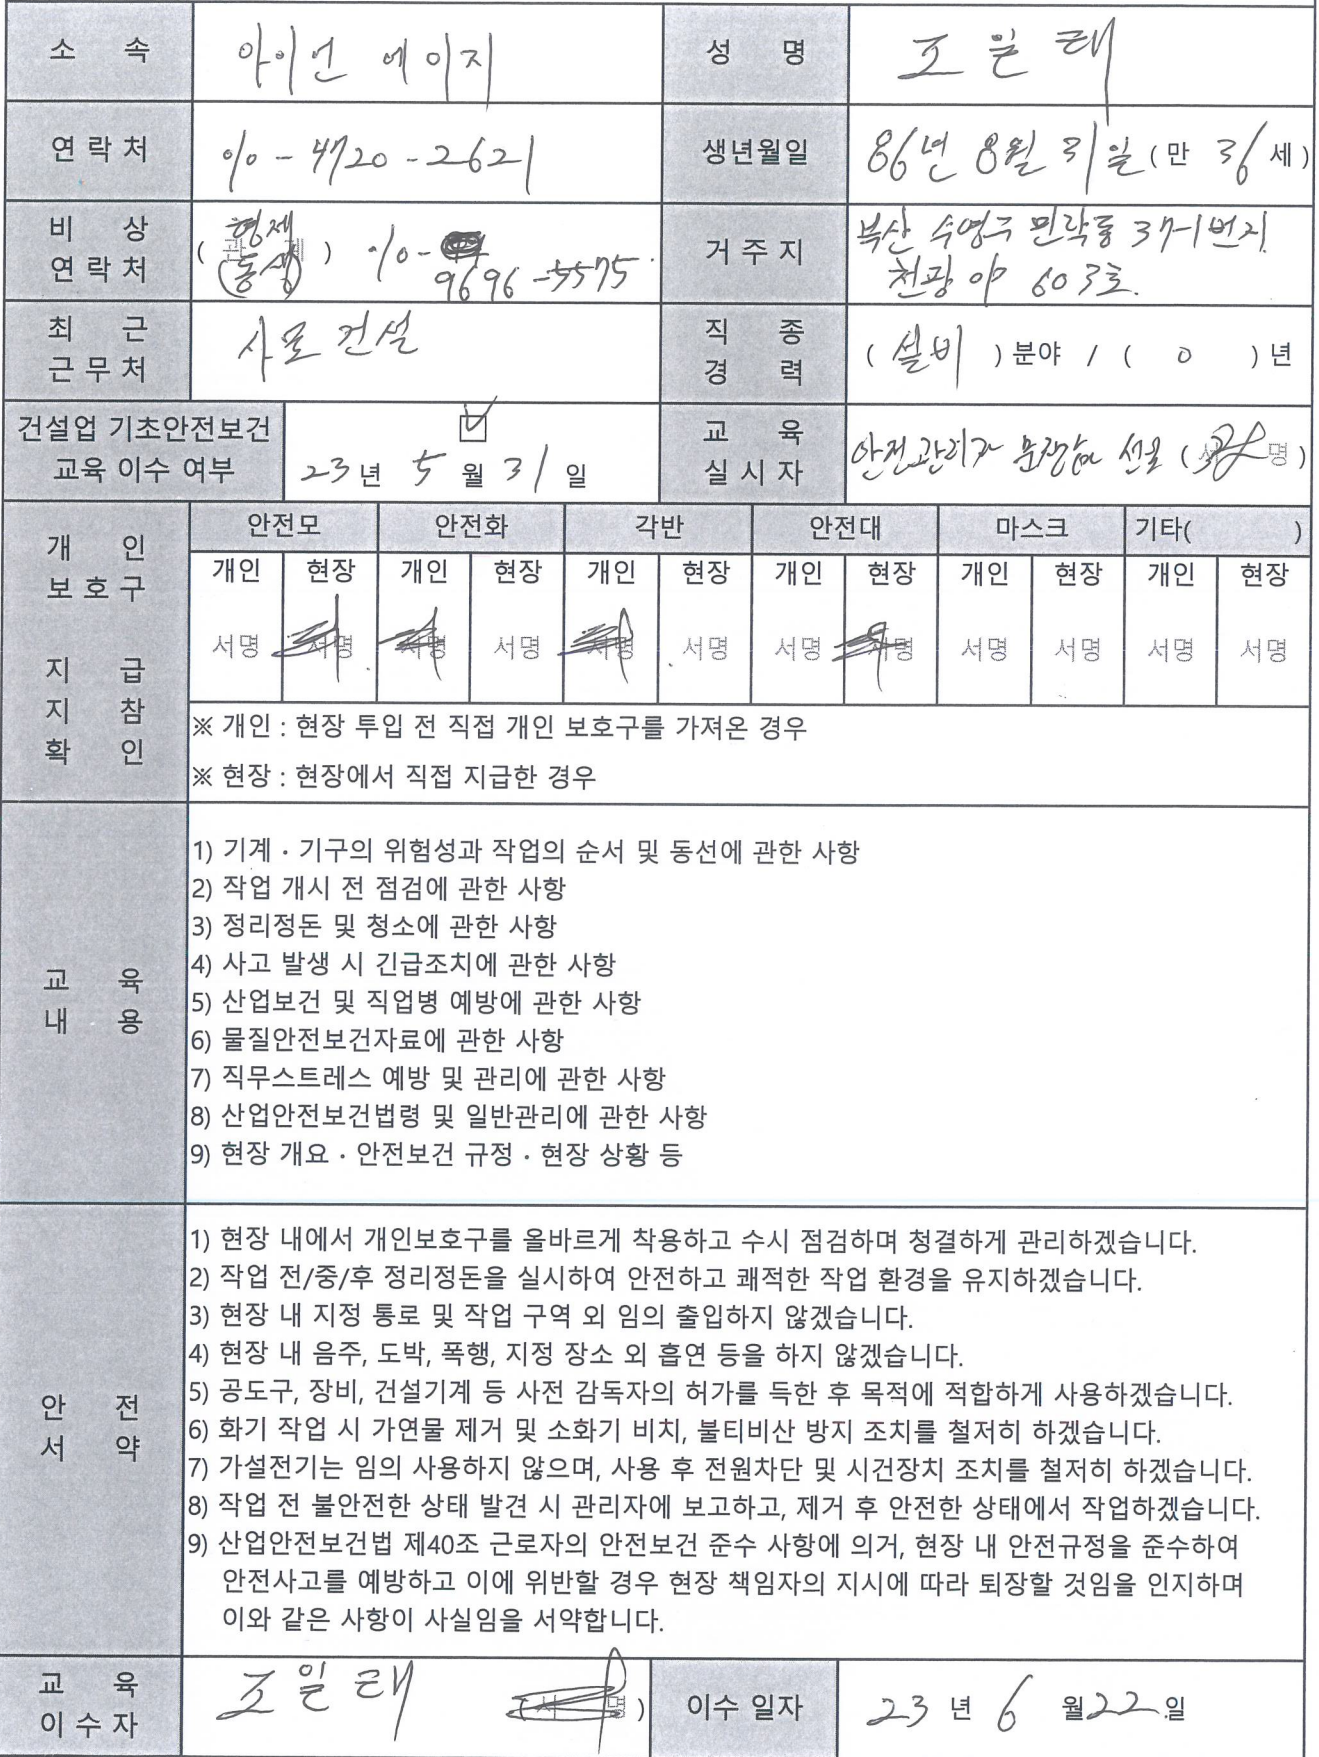 소 속 아이언 에이지 성 명 조일태
연락처 010-4720-2621 생년월일 86년 8월 31일 (만 36세)
비 상 연락처 ( 형제 (동생) ) 010- 9696-5575. 거주지 부산 수영구 민락동 37-1번지.
603호.
최 근 근무처 건설 직 종 경 력 ( 설비 ) 분야 / ( 0 ) 년
건설업 기초안전보건 교육 이수 여부 23년 5월 31일 교 육 실시자 안전관리자 ( 서명 )
개 인 보호구 지 급 지 참 확 인
안전모 안전화 각반 안전대 마스크 기타( )
개인 현장 개인 현장 개인 현장 개인 현장 개인 현장 개인 현장
서명 서명 서명 서명 서명 서명 서명 서명 서명 서명 서명 서명
※ 개인 : 현장 투입 전 직접 개인 보호구를 가져온 경우
※ 현장 : 현장에서 직접 지급한 경우
교 육 내 용
1) 기계 · 기구의 위험성과 작업의 순서 및 동선에 관한 사항
2) 작업 개시 전 점검에 관한 사항
3) 정리정돈 및 청소에 관한 사항
4) 사고 발생 시 긴급조치에 관한 사항
5) 산업보건 및 직업병 예방에 관한 사항
6) 물질안전보건자료에 관한 사항
7) 직무스트레스 예방 및 관리에 관한 사항
8) 산업안전보건법령 및 일반관리에 관한 사항
9) 현장 개요 · 안전보건 규정 · 현장 상황 등
안 전 서 약
1) 현장 내에서 개인보호구를 올바르게 착용하고 수시 점검하며 청결하게 관리하겠습니다.
2) 작업 전/중/후 정리정돈을 실시하여 안전하고 쾌적한 작업 환경을 유지하겠습니다.
3) 현장 내 지정 통로 및 작업 구역 외 임의 출입하지 않겠습니다.
4) 현장 내 음주, 도박, 폭행, 지정 장소 외 흡연 등을 하지 않겠습니다.
5) 공도구, 장비, 건설기계 등 사전 감독자의 허가를 득한 후 목적에 적합하게 사용하겠습니다.
6) 화기 작업 시 가연물 제거 및 소화기 비치, 불티비산 방지 조치를 철저히 하겠습니다.
7) 가설전기는 임의 사용하지 않으며, 사용 후 전원차단 및 시건장치 조치를 철저히 하겠습니다.
8) 작업 전 불안전한 상태 발견 시 관리자에 보고하고, 제거 후 안전한 상태에서 작업하겠습니다.
9) 산업안전보건법 제40조 근로자의 안전보건 준수 사항에 의거, 현장 내 안전규정을 준수하여
안전사고를 예방하고 이에 위반할 경우 현장 책임자의 지시에 따라 퇴장할 것임을 인지하며
이와 같은 사항이 사실임을 서약합니다.
교 육 이수자 조일태 (서 명) 이수 일자 23년 6월 22일